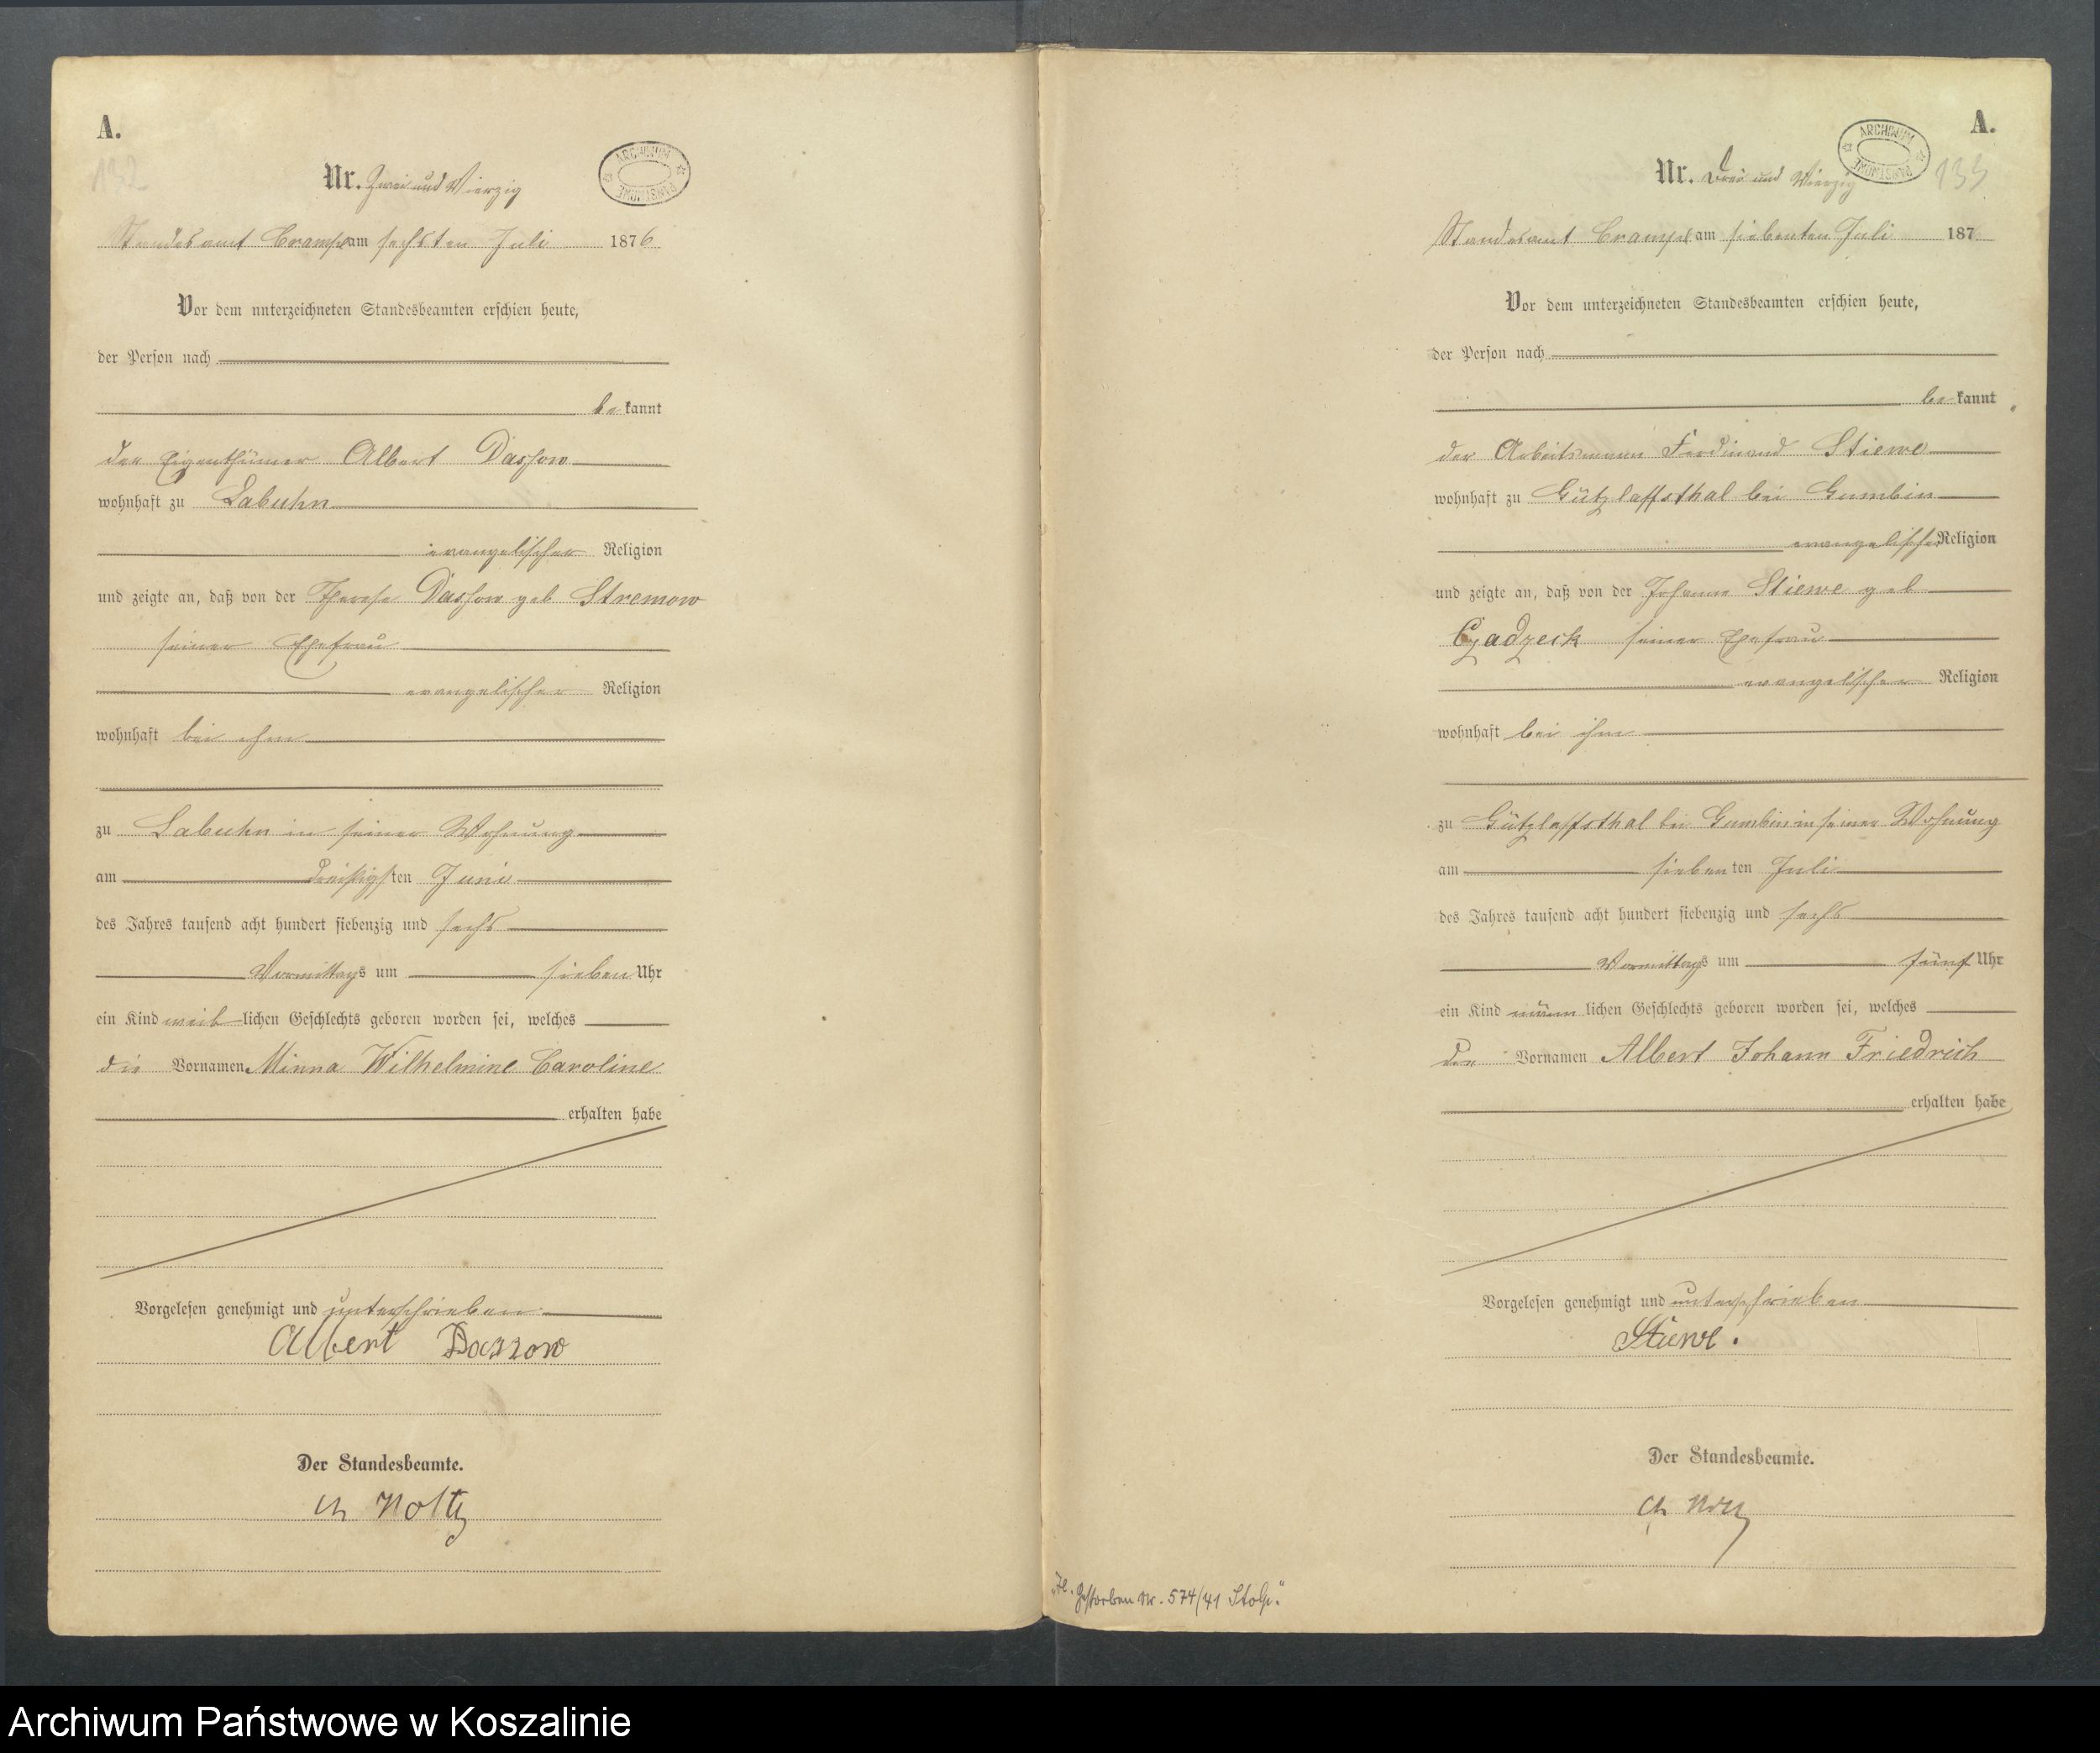 A.
132
Nr. Zwei und Vierzig
ARCHIWUM PAŃSTWOWE
Standesamt Crampe am sechsten Juli 1876
Vor dem unterzeichneten Standesbeamten erschien heute,
der Person nach
be kannt
der Eigenthümer Albert Dassow
wohnhaft zu Labuhn
evangelischer Religion
und zeigte an, daß von der Therese Dassow geb Stremow
seiner Ehefrau
evangelischer Religion
wohnhaft bei ihm
zu Labuhn in seiner Wohnung
am dreißigsten Juni
des Jahres tausend acht hundert siebenzig und sechs
Vormittags um sieben Uhr
ein Kind weiblichen Geschlechts geboren worden sei, welches
die Vornamen Minna Wilhelmine Caroline
erhalten habe
Vorgelesen genehmigt und unterschrieben
Albert Dassow
Der Standesbeamte.
Noltz
A.
133
Nr. Drei und Vierzig
ARCHIWUM PAŃSTWOWE
Standesamt Crampe am siebenten Juli 187
Vor dem unterzeichneten Standesbeamten erschien heute,
der Person nach
be kannt
der Arbeitsmann Ferdinand Stiewe
wohnhaft zu Gützlaffsthal bei Gumbin
evangelischer Religion
und zeigte an, daß von der Johanne Stiewe geb
Czadzeck seiner Ehefrau
evangelischer Religion
wohnhaft bei ihm
zu Gützlaffsthal bei Gumbin in seiner Wohnung
am siebenten Juli
des Jahres tausend acht hundert siebenzig und sechs
Vormittags um fünf Uhr
ein Kind männlichen Geschlechts geboren worden sei, welches
die Vornamen Albert Johann Friedrich
erhalten habe
Vorgelesen genehmigt und unterschrieben
Stiewe.
Der Standesbeamte.
Noltz
Gestorben Nr. 574/41 Stolp."
Archiwum Państwowe w Koszalinie